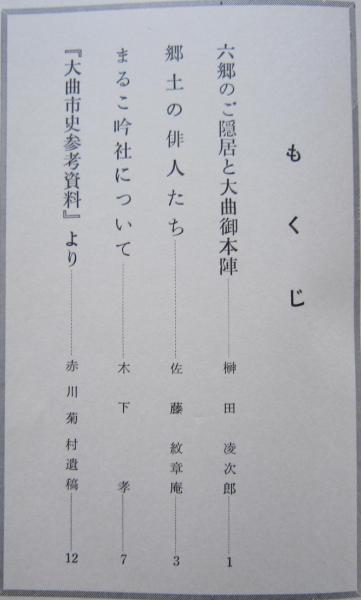 もくじ
六郷のご隠居と大曲御本陣……榊田凌次郎……1
郷土の俳人たち……佐藤紋章庵……3
まるこ吟社について……木下孝……7
『大曲市史参考資料』より……赤川菊村遺稿……12